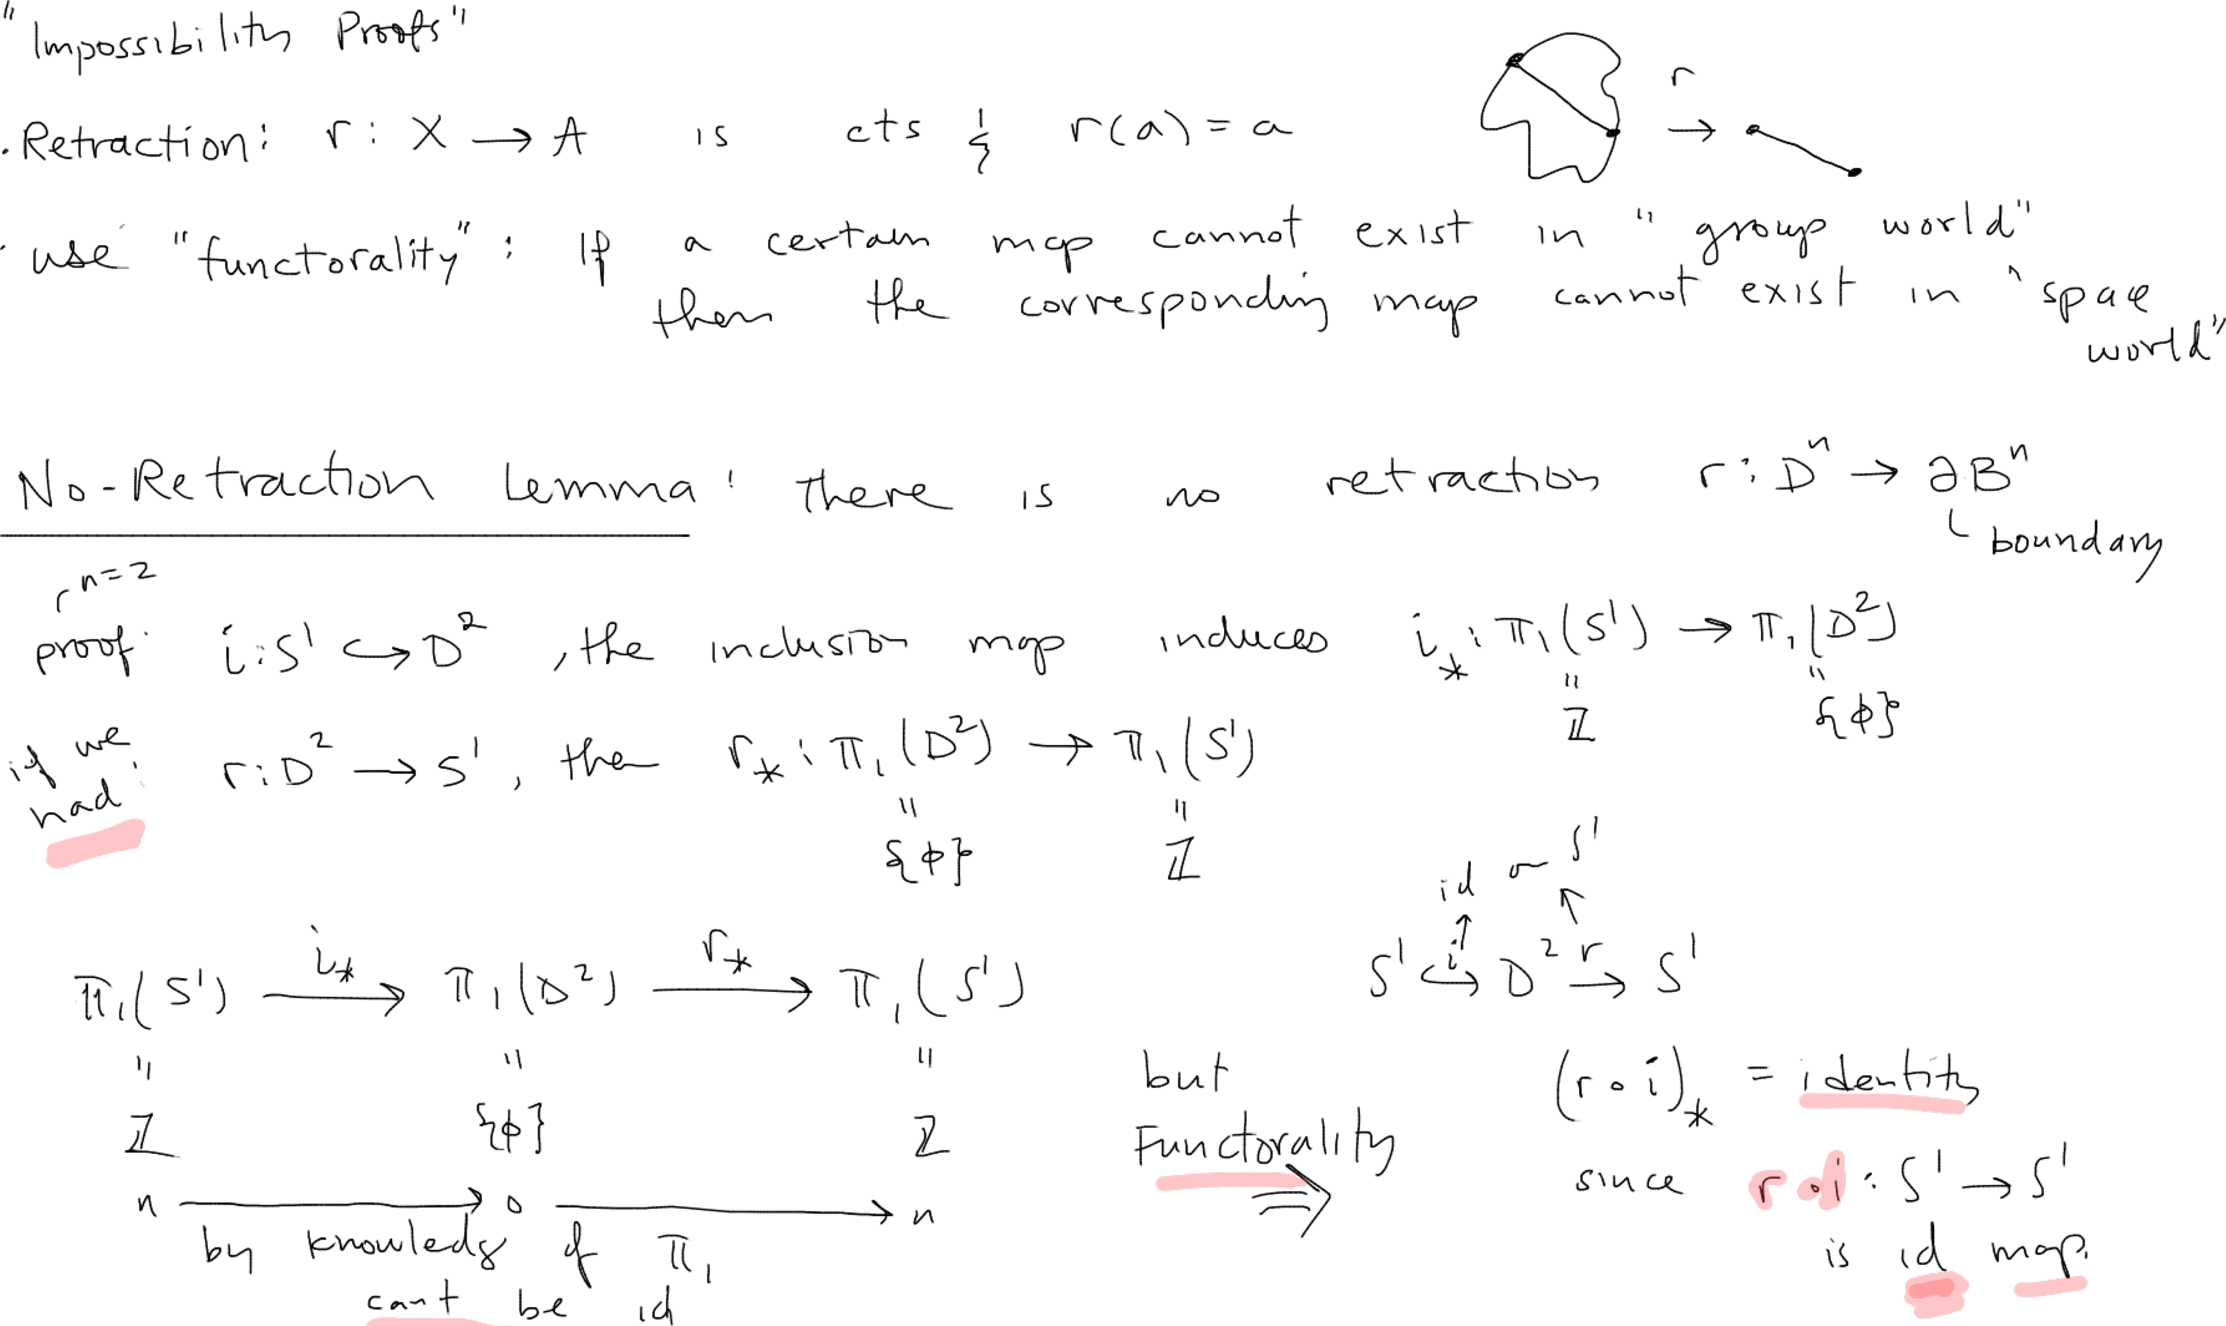 "Impossibility Proofs"
r
. Retraction: r : X → A is cts & r(a) = a →
· use "functorality" : If a certain map cannot exist in "group world"
then the corresponding map cannot exist in "space
world"
No-Retraction Lemma: there is no retraction r : Dⁿ → ∂Bⁿ
boundary
n=2
proof: i : S¹ ↪ D², the inclusion map induces i_* : π₁(S¹) → π₁(D²)
" "
ℤ {ϕ}
if we
had: r : D² → S¹, then r_* : π₁(D²) → π₁(S¹)
" "
{ϕ} ℤ
id on S¹
↑ ↖
π₁(S¹) —i_*→ π₁(D²) —r_*→ π₁(S¹)
S¹ ↪i D² →r S¹
" " "
ℤ {ϕ} ℤ
n ⟶ 0 ⟶ n
by knowledg of π₁
cant be id
but
Functorality
⇒
(r ∘ i)_* = identity
since r∘i : S¹ → S¹
is id map.